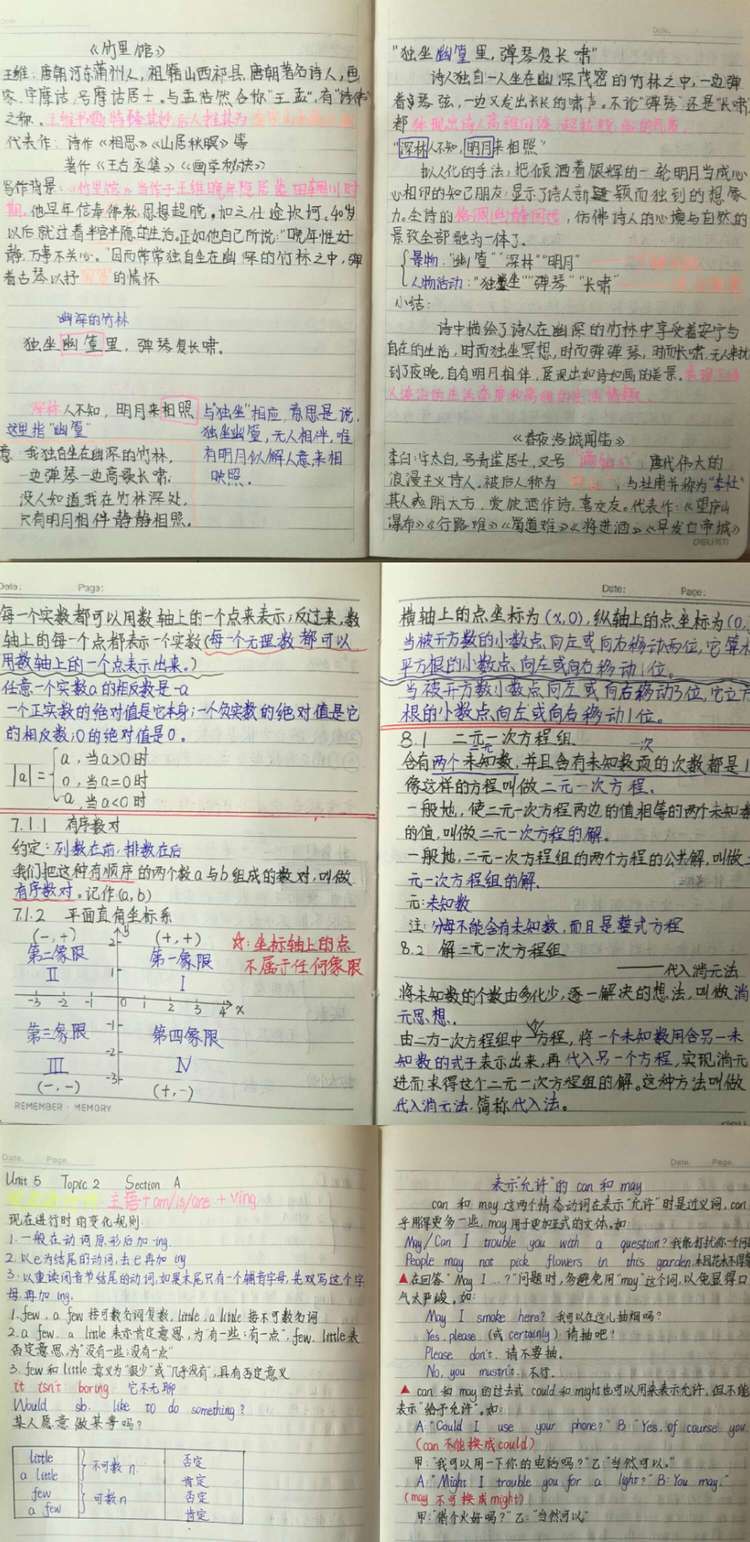 《竹里馆》
王维：唐朝河东蒲州人，祖籍山西祁县，唐朝著名诗人，画
家，字摩诘，号摩诘居士。与孟浩然合称“王孟”，有“诗佛”
之称。
代表作：诗作《相思》《山居秋暝》等
著作《王右丞集》《画学秘诀》
写作背景：《竹里馆》当作于王维晚年隐居蓝田辋川时
期。他早年信奉佛教，思想超脱。加之仕途坎坷，40岁
以后就过着半官半隐的生活。正如他自己所说：“晚年惟好
静，万事不关心。”因而常常独自坐在幽深的竹林之中，弹
着古琴以抒寂寞的情怀
幽深的竹林
独坐幽篁里，弹琴复长啸。
深林人不知，明月来相照
这里指“幽篁”
与“独坐”相应，意思是说，
独坐幽篁，无人相伴，唯
有明月似解人意来相
映照。
意：我独自坐在幽深的竹林，
一边弹琴一边高歌长啸，
没人知道我在竹林深处，
只有明月相伴静静相照。
Date:
“独坐幽篁里，弹琴复长啸”
诗人独自一人坐在幽深茂密的竹林之中，一边弹
着琴弦，一边又发出长长的啸声。不论“弹琴”还是“长啸”
都体现出诗人高雅闲淡、超拔脱俗的气质。
“深林人不知，明月来相照”
拟人化的手法，把倾洒着银辉的一轮明月当成心
心相印的知己朋友，显示了诗人新颖而独到的想象
力。全诗的格调幽静闲远，仿佛诗人的心境与自然的
景致全部融为一体了。
景物：“幽篁”“深林”“明月”
人物活动：“独坐”“弹琴”“长啸”
小结：
诗中描绘了诗人在幽深的竹林中享受着安宁与
自在的生活，时而独坐冥想，时而弹弹琴，时而长啸，无人来扰
到了夜晚，自有明月相伴，展现出如诗如画的美景。表现了诗
人淡泊的生活态度和高雅的生活情趣
《春夜洛城闻笛》
李白：字太白，号青莲居士，又号“谪仙人”，唐代伟大的
浪漫主义诗人，被后人称为“诗仙”，与杜甫并称为“李杜”
其人爽朗大方，爱饮酒作诗，喜交友。代表作：《望庐山
瀑布》《行路难》《蜀道难》《将进酒》《早发白帝城》
Date: Page:
每一个实数都可以用数轴上的一个点来表示；反过来，数
轴上的每一个点都表示一个实数(每一个无理数都可以
用数轴上的一个点表示出来。)
任意一个实数a的相反数是-a
一个正实数的绝对值是它本身；一个负实数的绝对值是它
的相反数；0的绝对值是0。
|a|=
a，当a>0时
0，当a=0时
-a，当a<0时
7.1.1 有序数对
约定：列数在前，排数在后
我们把这种有顺序的两个数a与b组成的数对，叫做
有序数对。记作(a,b)
7.1.2 平面直角坐标系
(-,+) 2 y (+,+)
第二象限 第一象限
II 1 I
☆：坐标轴上的点
不属于任何象限
-3 -2 -1 0 1 2 3 4 x
第三象限 -1 第四象限
III -2 IV
(-,-) -3 (+,-)
REMEMBER·MEMORY
Date: Page:
横轴上的点坐标为(x,0)，纵轴上的点坐标为(0,
当被开方数的小数点向左或向右移动两位，它算术
平方根的小数点向左或向右移动1位。
当被开方数小数点向左或向右移动3位，它立方
根的小数点向左或向右移动1位。
8.1 二元一次方程组
二元 一次
含有两个未知数，并且含有未知数项的次数都是1
像这样的方程叫做二元一次方程。
一般地，使二元一次方程两边的值相等的两个未知数
的值，叫做二元一次方程的解。
一般地，二元一次方程组的两个方程的公共解，叫做二
元一次方程组的解。
元：未知数
注：分母不能含有未知数，而且是整式方程
8.2 解二元一次方程组
——代入消元法
将未知数的个数由多化少，逐一解决的想法，叫做消
元思想。
由二元一次方程组中一方程，将一个未知数用含另一未
知数的式子表示出来，再代入另一个方程，实现消元
进而求得这个二元一次方程组的解。这种方法叫做
代入消元法，简称代入法。
Date. Page.
Unit 5 Topic 2 Section A
主语+am/is/are+Ving
现在进行时的变化规则
1. 一般在动词原形后加-ing.
2. 以e为结尾的动词，去e再加ing
3. 以重读闭音节结尾的动词，如果末尾只有一个辅音字母，先双写这个字
母再加ing.
1. few, a few 接可数名词复数, little, a little 接不可数名词
2. a few, a little 表示肯定意思，为“有一些；有一点”，few, little表
否定意思，为“没有一些；没有一点”
3. few和little意义为“很少”或“几乎没有”，具有否定意义
It isn't boring 它不无聊
Would sb. like to do something?
某人愿意做某事吗?
little 不可数n 否定
a little 肯定
few 可数n 否定
a few 肯定
Date. Page.
表示“允许”的can和may
can和may这两个情态动词在表示“允许”时是近义词，can
乎用得更多一些，may用于更加正式的文体。如：
May/Can I trouble you with a question? 我能打扰你一个问
People may not pick flowers in this garden.
▲在回答“May I ...?”问题时，多避免用“may”这个词，以免显得口
气太严峻。如：
May I smoke here? 我可以在这儿抽烟吗?
Yes, please. (或certainly) 请抽吧!
Please don't. 请不要抽。
No, you mustn't. 不行。
▲can和may的过去式could和might也可以用来表示允许，但不能
表示“给予允许”。如：
A: “Could I use your phone?” B: “Yes, of course you
(can不能换成could)
甲：“我可以用一下你的电话吗?”乙：“当然可以。”
A: “Might I trouble you for a light?” B: “You may.”
(may不可换成might)
甲：“借个火好吗?”乙：“当然可以”